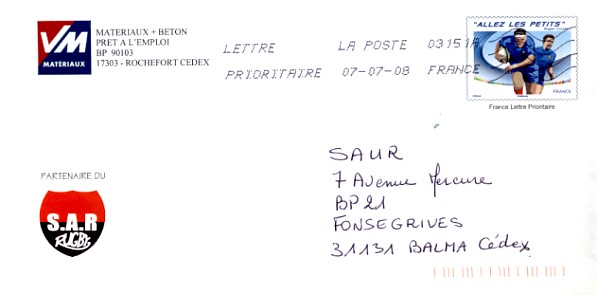 VM
MATÉRIAUX
MATERIAUX + BETON
PRET A L'EMPLOI
BP 90103
17303 - ROCHEFORT CEDEX
LETTRE LA POSTE 03151A
PRIORITAIRE 07-07-08 FRANCE
"ALLEZ LES PETITS"
France Lettre Prioritaire
PARTENAIRE DU
S.A.R
RUGBY
SAUR
7 Avenue Mercure
BP 21
FONSEGRIVES
31131 BALMA Cédex